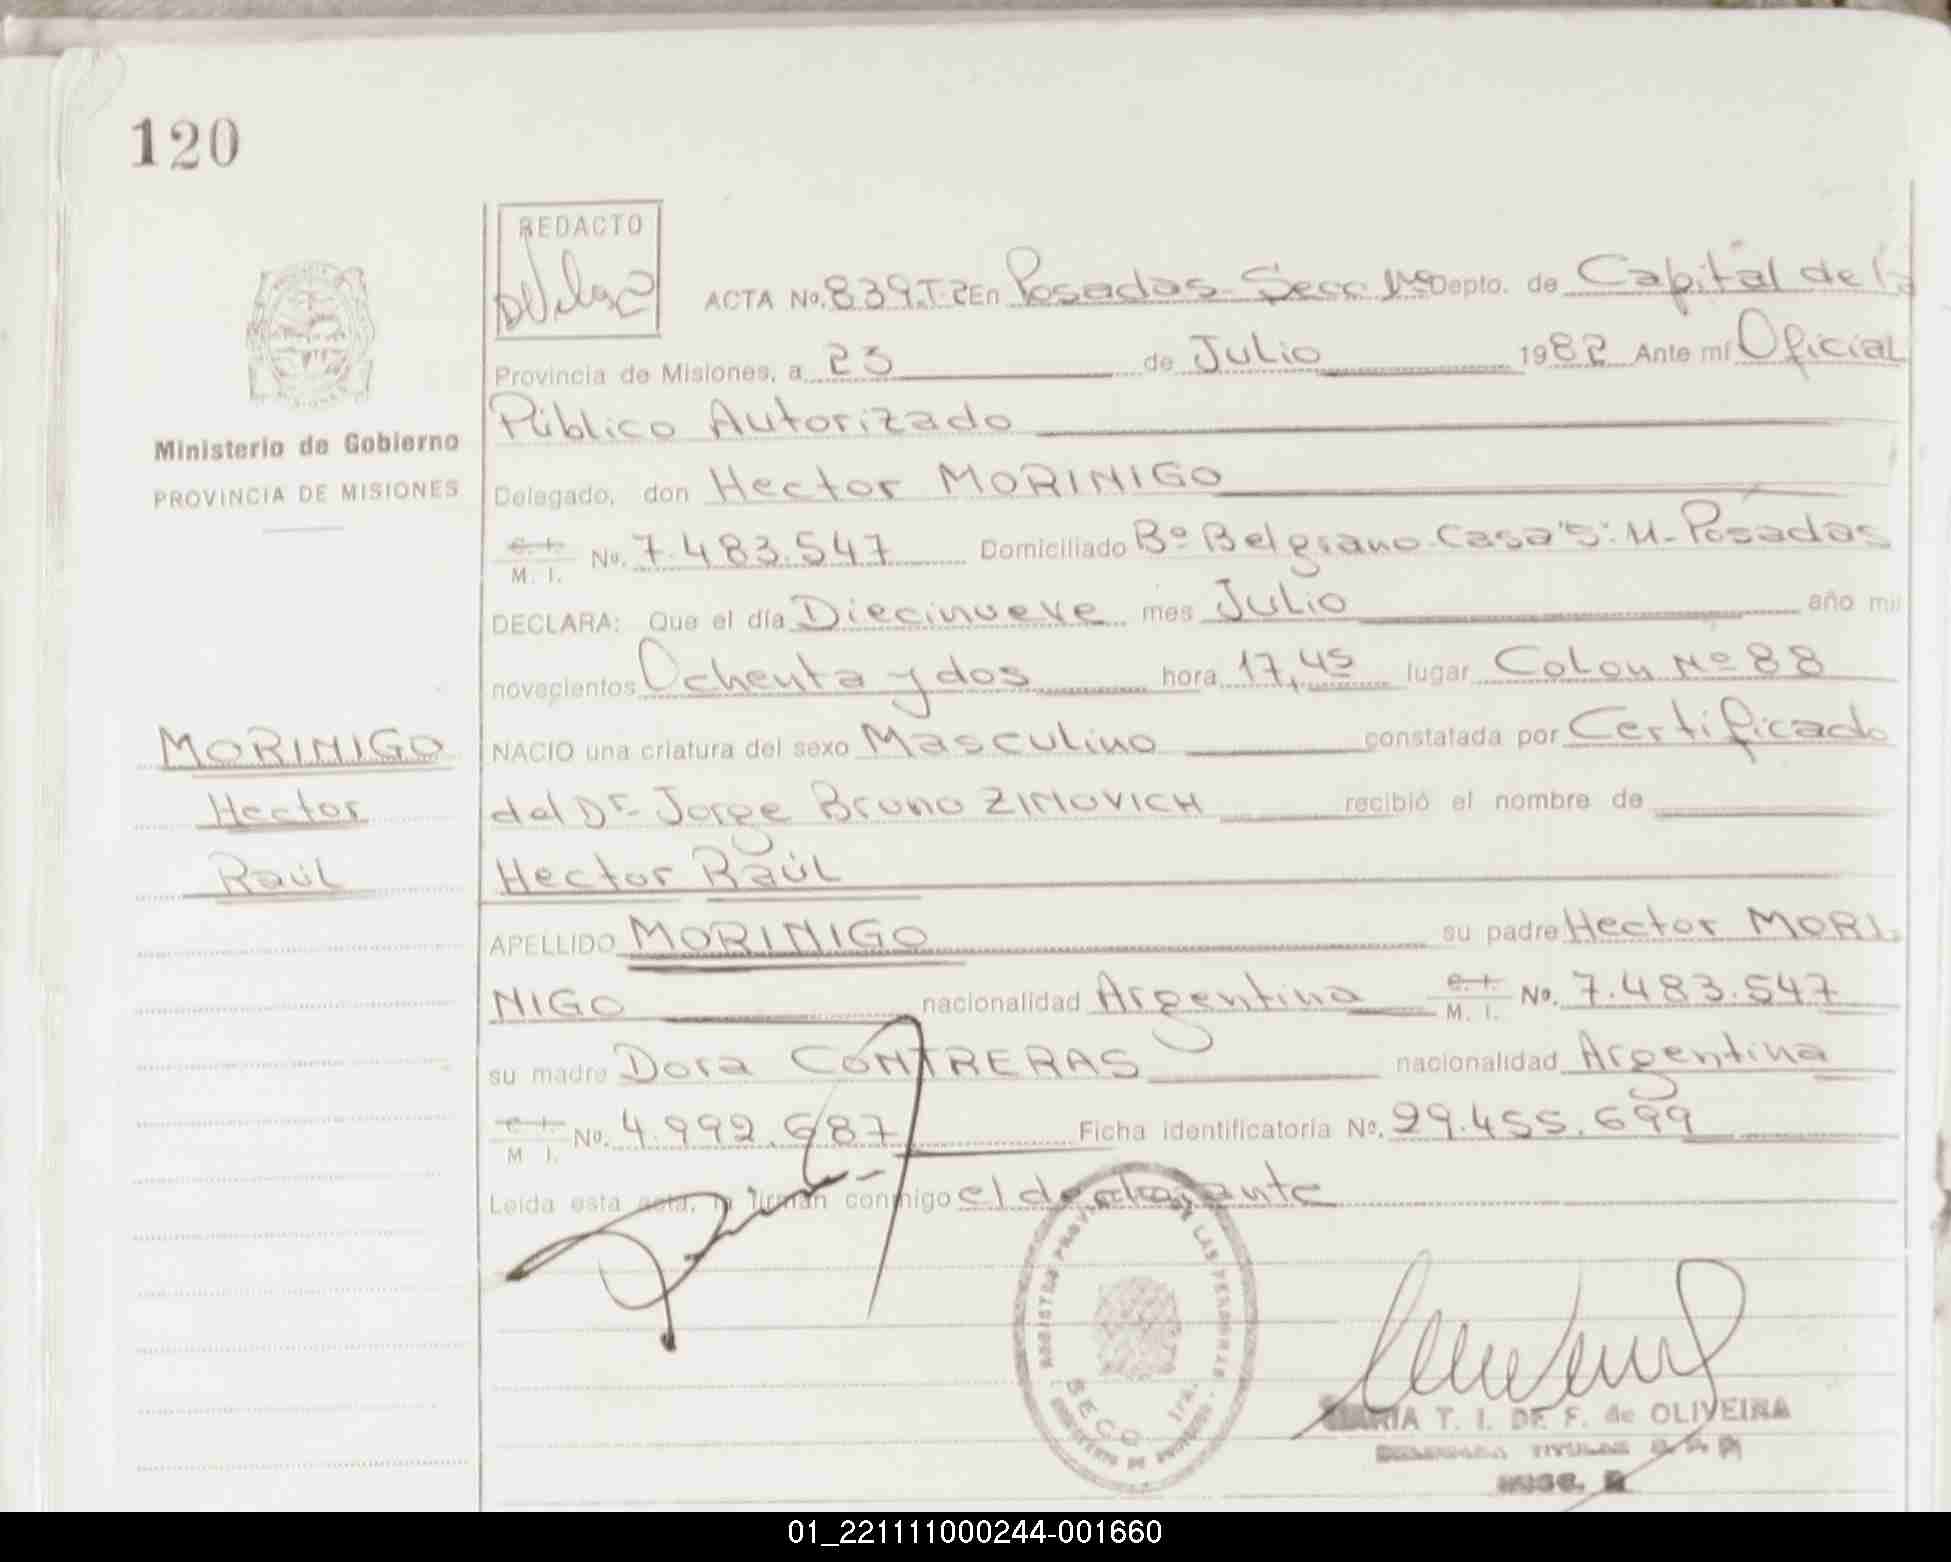 120
REDACTO
ACTA No. 839.T.2 En Posadas-Secc 1ª Depto. de Capital de la
Provincia de Misiones, a 23 de Julio 1982 Ante mí Oficial
Ministerio de Gobierno
Público Autorizado
PROVINCIA DE MISIONES
Delegado, don Hector MORINIGO
C. I. M. I. No. 7.483.547 Domiciliado Bº Belgrano-Casa "5": M- Posadas
DECLARA: Que el día Diecinueve mes Julio año mil
novecientos Ochenta y dos hora 17,45 lugar Colon Nº 88
MORINIGO
NACIO una criatura del sexo Masculino constatada por Certificado
Hector
del Dr Jorge Bruno ZIMOVICH recibió el nombre de
Raúl
Hector Raúl
APELLIDO MORINIGO su padre Hector MORI
NIGO nacionalidad Argentina C. I. M. I. No. 7.483.547
su madre Dora CONTRERAS nacionalidad Argentina
C. I. M. I. No. 4.992.687 Ficha identificatoria No. 29.455.699
Leída esta acta, la firman conmigo el declarante
SECC 1ra.
MARIA T. I. DE F. de OLIVEIRA
01_221111000244-001660